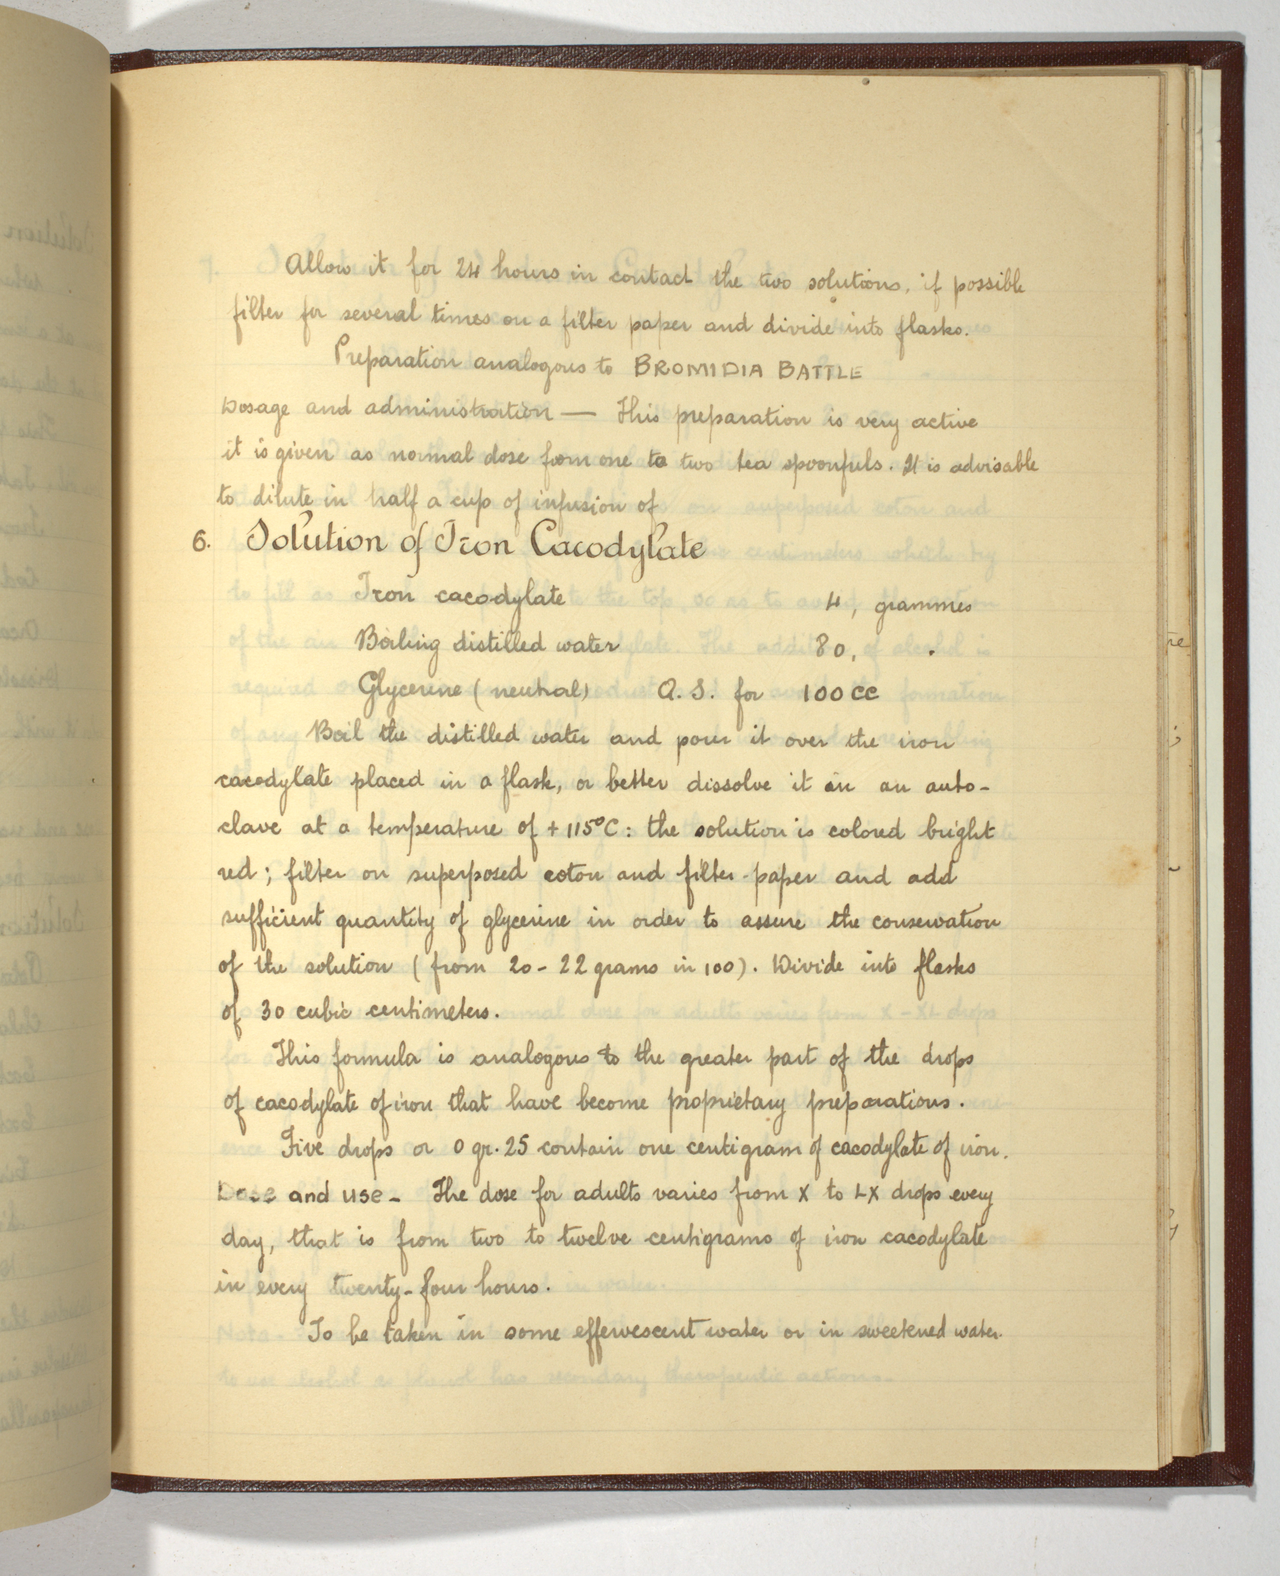 Allow it for 24 hours in contact the two solutions, if possible
filter for several times on a filter paper and divide into flasks.
Preparation analogous to BROMIDIA BATTLE
Dosage and administration — This preparation is very active
it is given as normal dose from one to two tea spoonfuls. It is advisable
to dilute in half a cup of infusion of
6. Solution of Iron Cacodylate
Iron cacodylate 4, grammes
Boiling distilled water 80, .
Glycerine (neutral) Q. S. for 100 cc
Boil the distilled water and pour it over the iron
cacodylate placed in a flask, or better dissolve it in an auto-
clave at a temperature of +115°C: the solution is colored bright
red; filter on superposed coton and filter-paper and add
sufficient quantity of glycerine in order to assure the conservation
of the solution (from 20-22 grams in 100). Divide into flasks
of 30 cubic centimeters.
This formula is analogous to the greater part of the drops
of cacodylate of iron that have become proprietary preparations.
Five drops or 0 gr. 25 contain one centigram of cacodylate of iron.
Dose and use- The dose for adults varies from X to LX drops every
day, that is from two to twelve centigrams of iron cacodylate
in every twenty-four hours.
To be taken in some effervescent water or in sweetened water.